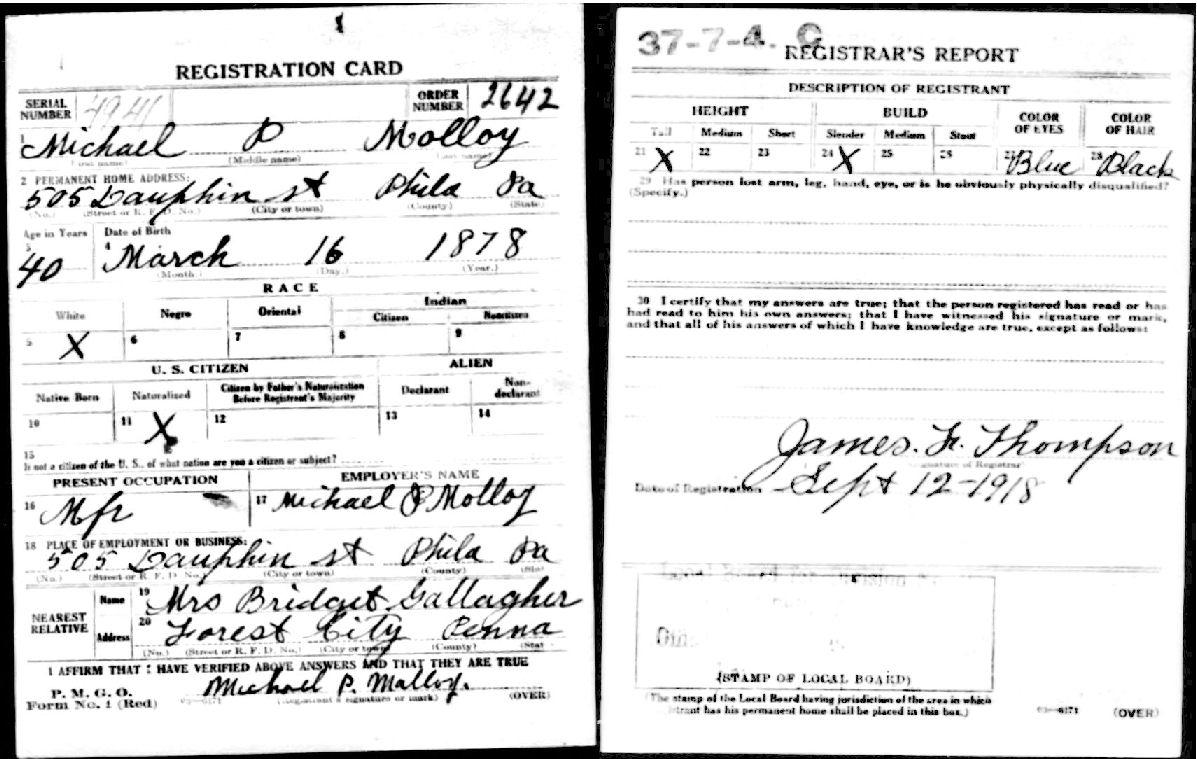 REGISTRATION CARD
SERIAL NUMBER ORDER NUMBER 2642
1 Michael P Molloy
(First name) (Middle name) (Last name)
2 PERMANENT HOME ADDRESS:
505 Dauphin st Phila Pa
(No.) (Street or R. F. D. No.) (City or town) (County) (State)
Age in Years Date of Birth
3 40 4 March 16 1878
(Month.) (Day.) (Year.)
RACE
White Negro Oriental Indian
Citizen Noncitizen
5 X 6 7 8 9
U. S. CITIZEN ALIEN
Native Born Naturalized Citizen by Father's Naturalization Before Registrant's Majority Declarant Non-declarant
10 11 X 12 13 14
15
If not a citizen of the U. S., of what nation are you a citizen or subject?
PRESENT OCCUPATION EMPLOYER'S NAME
16 Mfr 17 Michael P Molloy
18 PLACE OF EMPLOYMENT OR BUSINESS:
505 Dauphin st Phila Pa
(No.) (Street or R. F. D. No.) (City or town) (County) (State)
NEAREST RELATIVE Name 19 Mrs Bridget Gallagher
Address 20 Forest City Penna
(No.) (Street or R. F. D. No.) (City or town) (County) (State
I AFFIRM THAT I HAVE VERIFIED ABOVE ANSWERS AND THAT THEY ARE TRUE
P. M. G. O.
Form No. 1 (Red) Michael P. Molloy.
(Registrant's signature or mark) (OVER)
37-7-4. C
REGISTRAR'S REPORT
DESCRIPTION OF REGISTRANT
HEIGHT BUILD COLOR OF EYES COLOR OF HAIR
Tall Medium Short Slender Medium Stout
21 X 22 23 24 X 25 26 27 Blue 28 Black
29 Has person lost arm, leg, hand, eye, or is he obviously physically disqualified?
(Specify.)
30 I certify that my answers are true; that the person registered has read or has
had read to him his own answers; that I have witnessed his signature or mark,
and that all of his answers of which I have knowledge are true, except as follows:
James. F. Thompson
Signature of Registrar
Date of Registration Sept 12-1918
(STAMP OF LOCAL BOARD)
(The stamp of the Local Board having jurisdiction of the area in which
registrant has his permanent home shall be placed in this box.)
03—6171 (OVER)